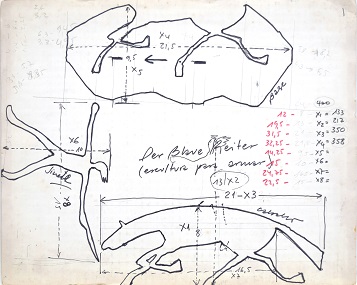 X4
21,5
9,5
X5
base
X6
10
X8
Der Blaue Reiter
(escultura para armar
13/X2
21-X3
X1
8
16,5
X7
400
12 - X1 = 133
19,5 - X2 = 212
31,5 - X3 = 350
32,25 - X4 = 358
14,25 - X5 =
15 - X6 =
24,75 - X7 =
22,5 - X8 =